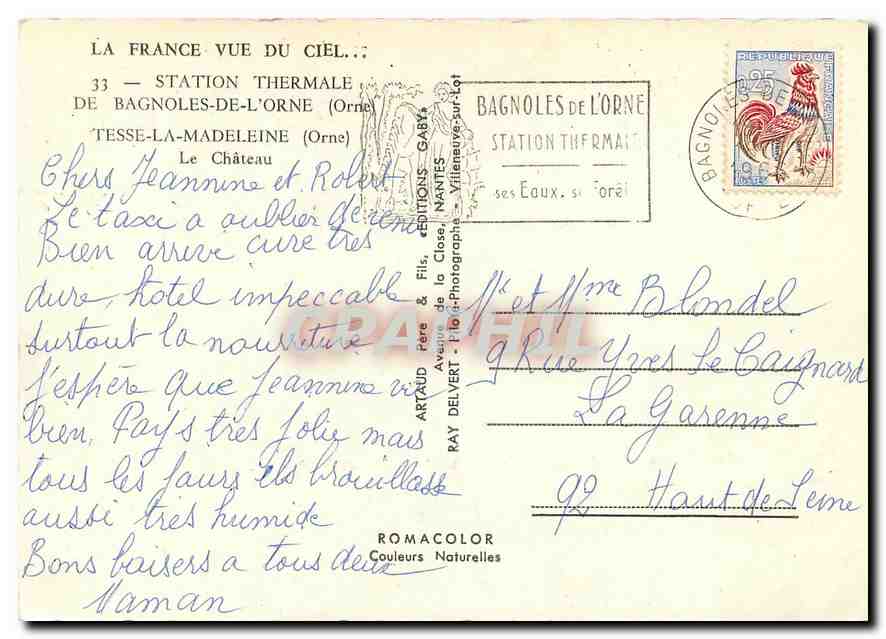 LA FRANCE VUE DU CIEL...
33 — STATION THERMALE
DE BAGNOLES-DE-L'ORNE (Orne)
TESSE-LA-MADELEINE (Orne)
Le Château
Chers Jeannine et Robert
Le taxi a oublier de
Bien arrive cure tres
dure, hotel impeccable
surtout la nourriture
J'espère que Jeannine va
bien, Pays tres Jolie mais
tous les Jours brouillasse
aussi tres humide
Bons baisers a tous deux
Maman
ARTAUD Père & Fils, «EDITIONS GABY»
Avenue de la Close, NANTES
RAY DELVERT - Pilote-Photographe - Villeneuve-sur-Lot
ROMACOLOR
Couleurs Naturelles
BAGNOLES DE L'ORNE
STATION THERMALE
ses Eaux, sa Forêt
BAGNOLES DE
REPUBLIQUE FRANÇAISE
0,25
Mr et Mme Blondel
9 Rue Yves Le Caignard
La Garenne
92 Haut de Seine
CPAPHIL